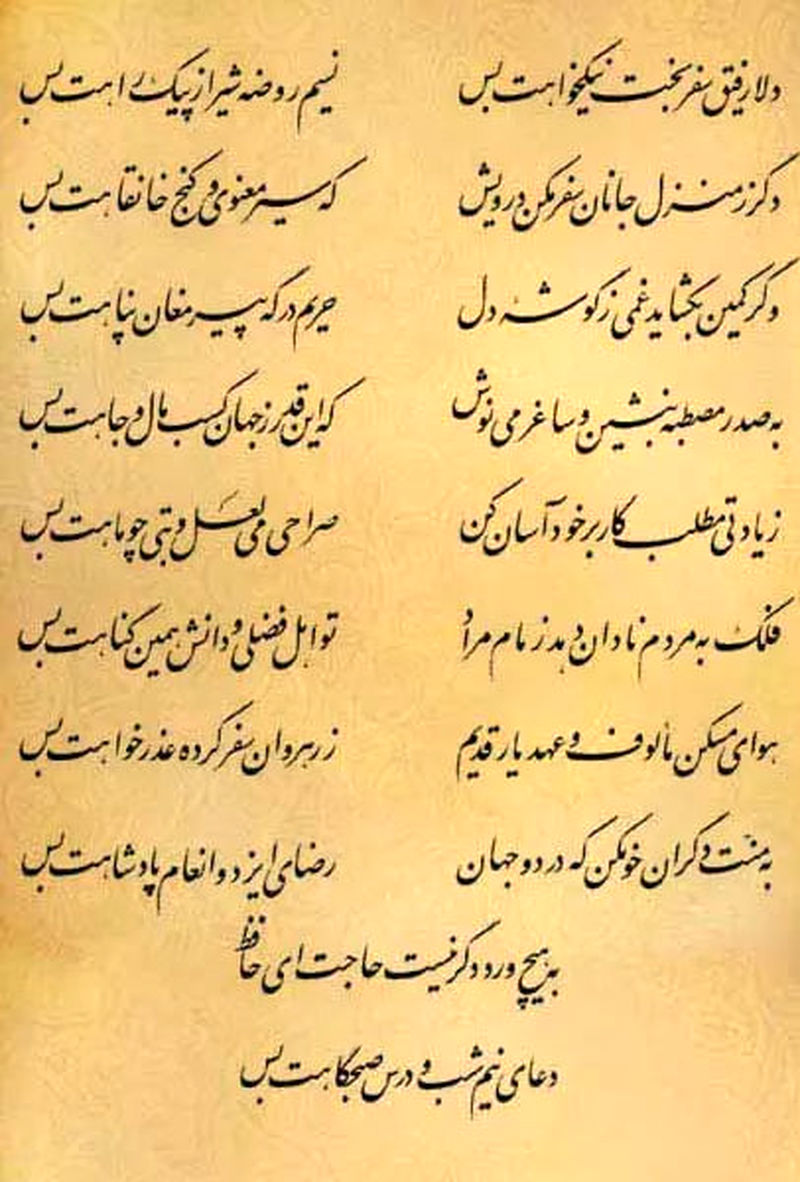 دلا رفیق سفر بخت نیکخواهت بس نسیم روضه شیراز پیک راهت بس
دگر ز منزل جانان سفر مکن درویش که سیر معنوی و کنج خانقاهت بس
وگر کمین بگشاید غمی ز گوشه دل حریم درگه پیر مغان پناهت بس
به صدر مصطبه بنشین و ساغر می نوش که این قدر ز جهان کسب مال و جاهت بس
زیادتی مطلب کار بر خود آسان کن صراحی می لعل و بتی چو ماهت بس
فلک به مردم نادان دهد زمام مراد تو اهل فضلی و دانش همین گناهت بس
هوای مسکن مألوف و عهد یار قدیم ز رهروان سفر کرده عذرخواهت بس
به منت دگران خو مکن که در دو جهان رضای ایزد و انعام پادشاهت بس
به هیچ ورد دگر نیست حاجت ای حافظ
دعای نیم شب و درس صبحگاهت بس